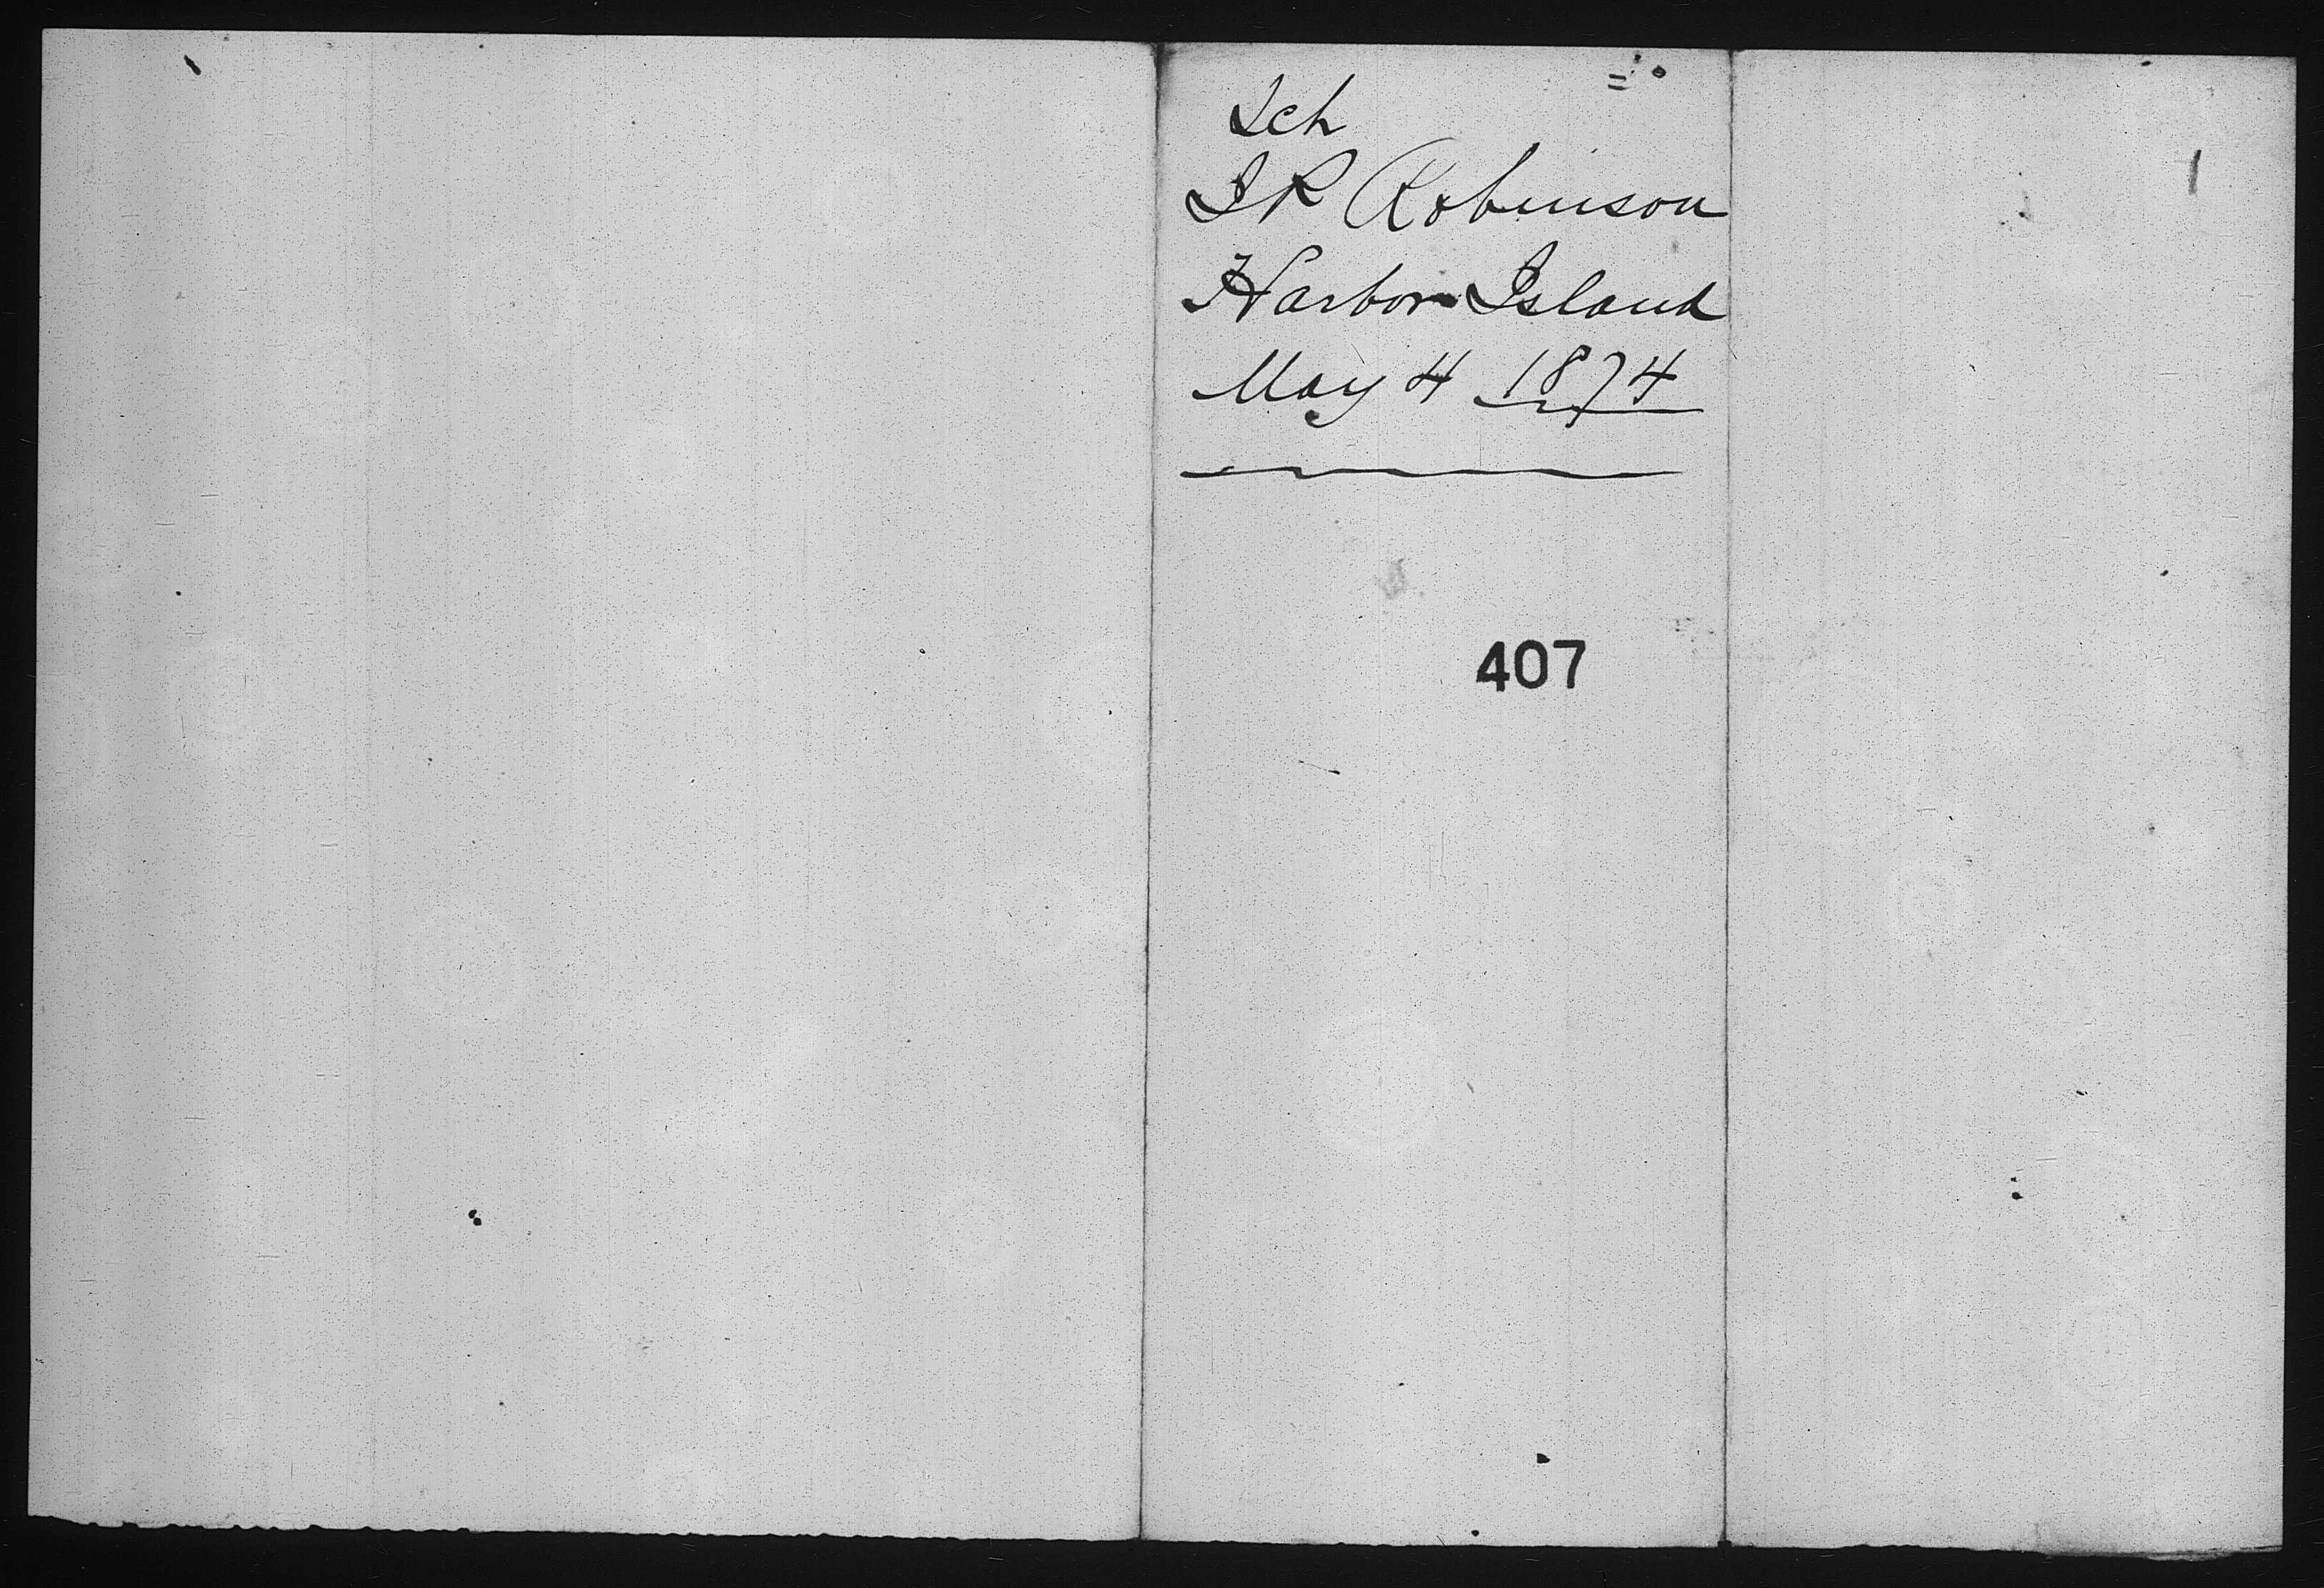 Sch
I R Robinson
Harbor Island
May 4 1874
407